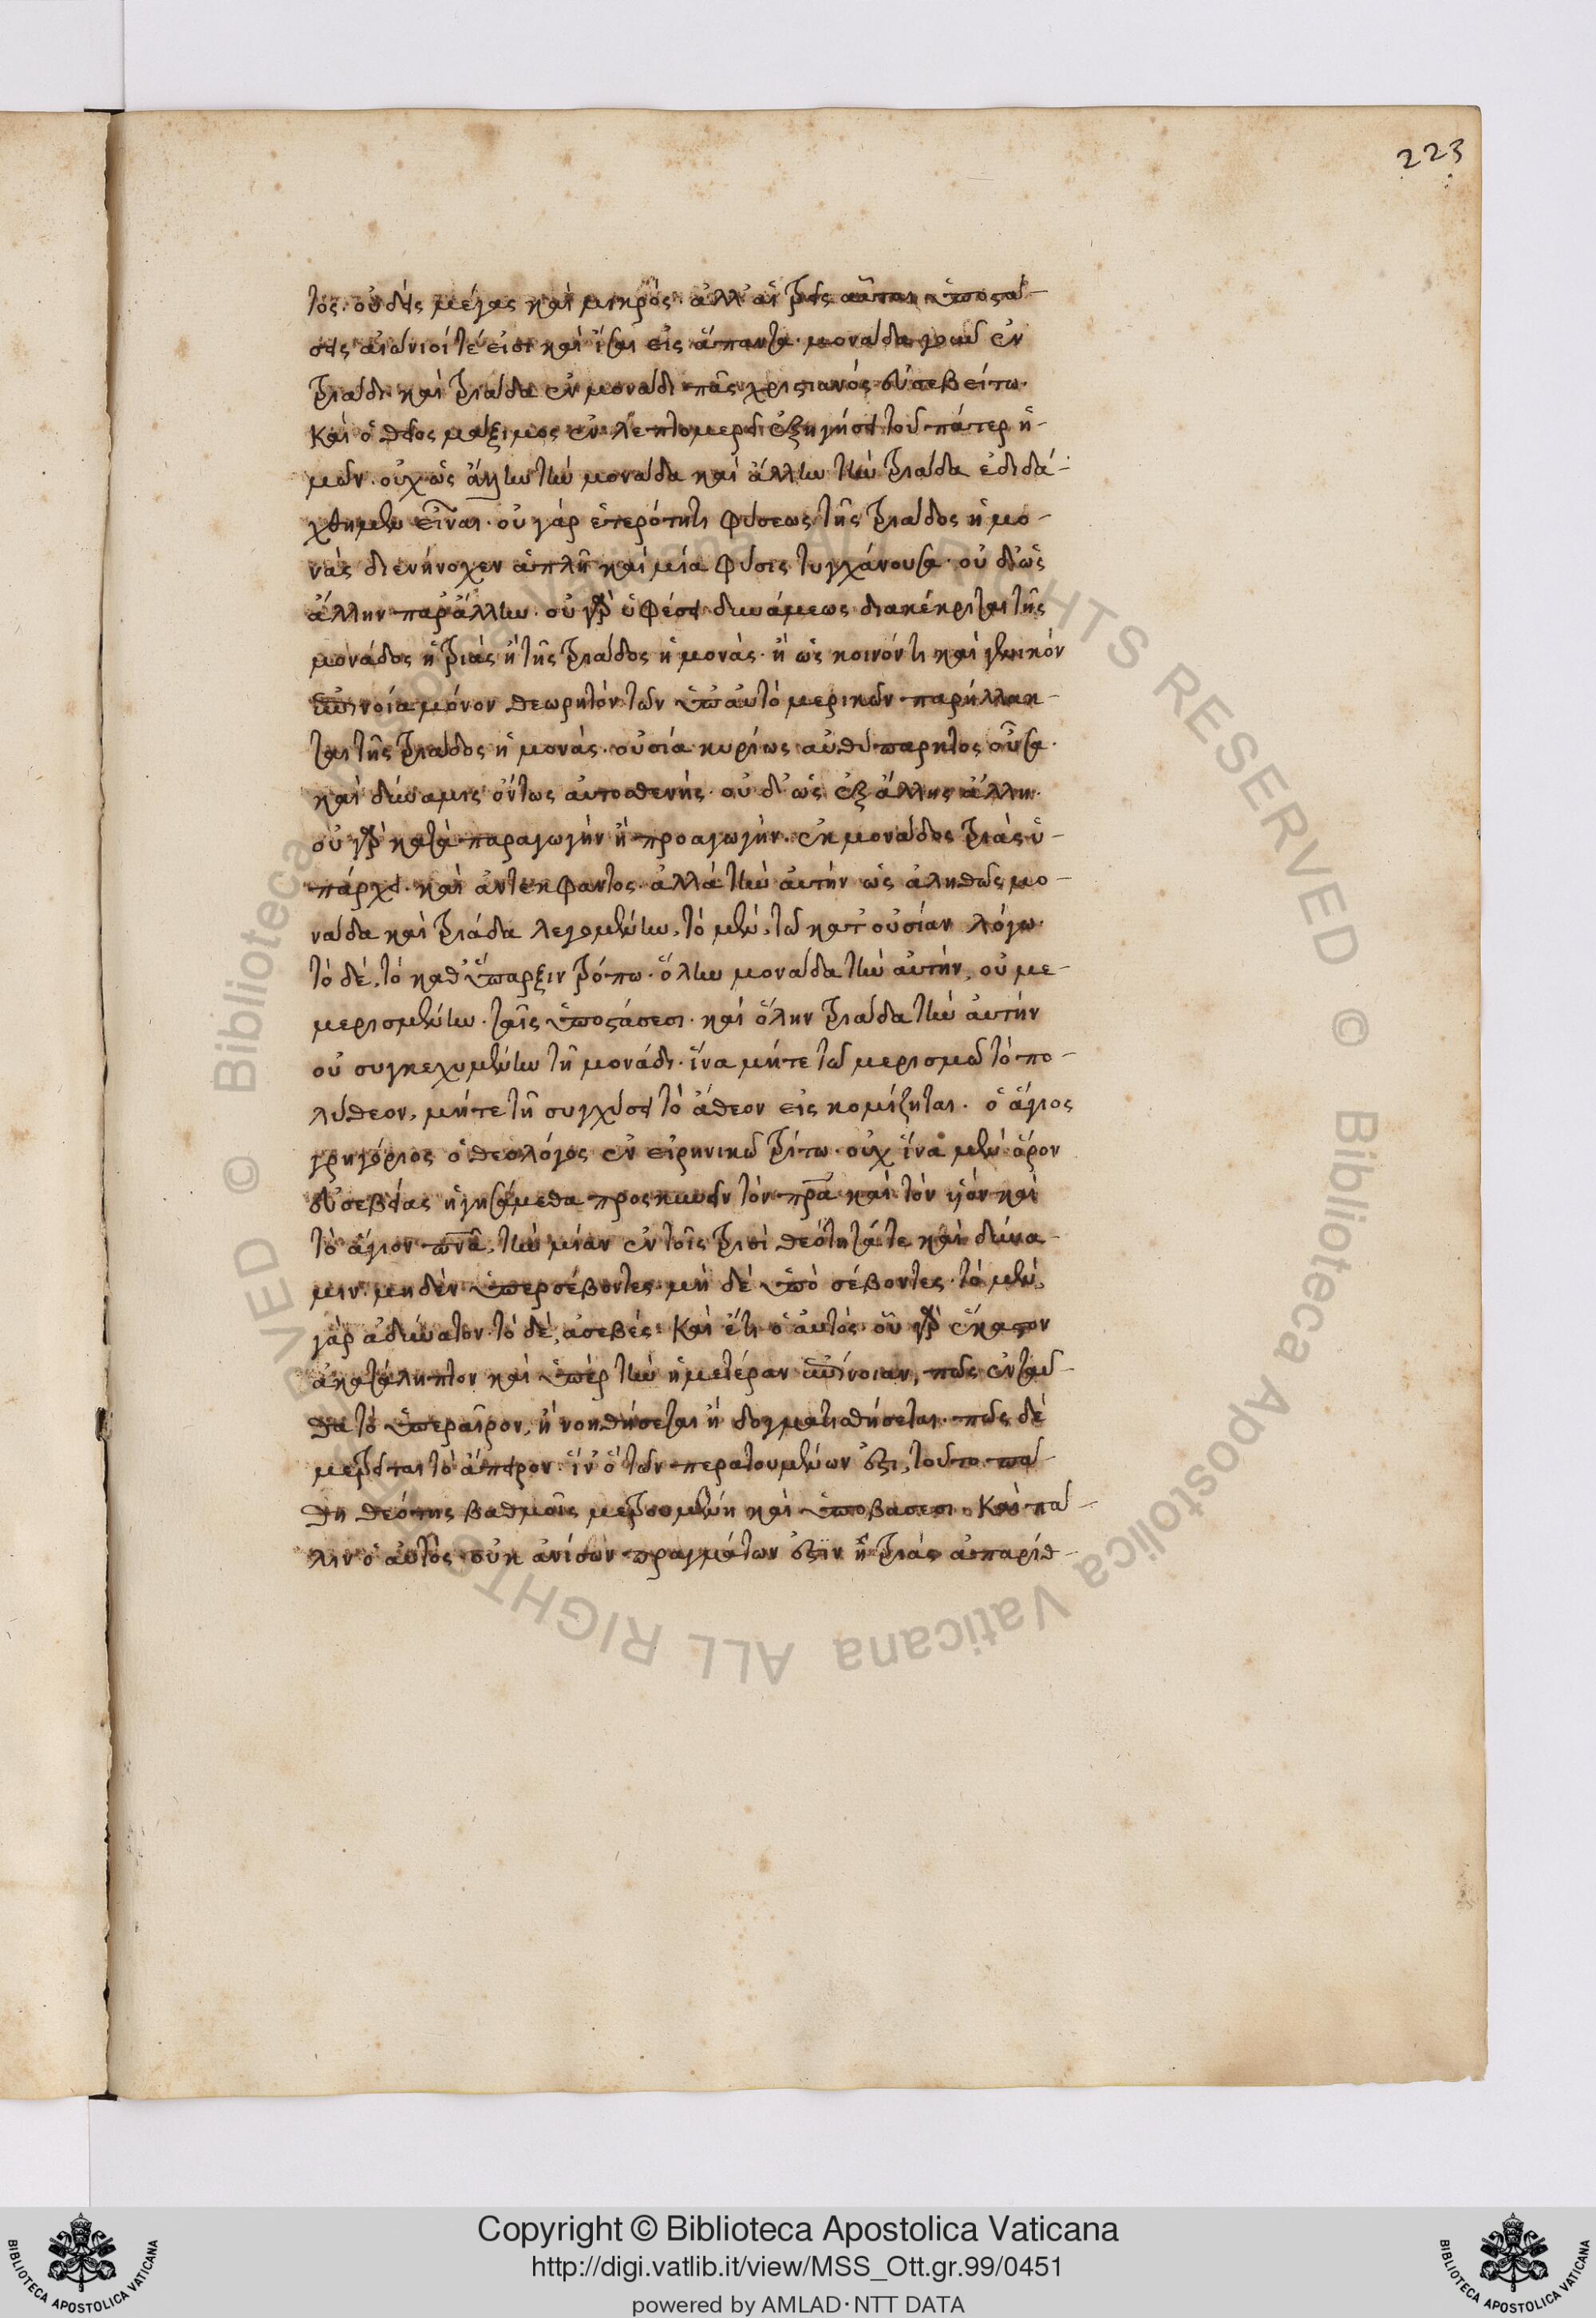 223
τος· οὐδεὶς μέγας καὶ μικρός· ἀλλ' αἱ τρεῖς αὗται ὑποστά-
σεις αἰώνιοί τέ εἰσι καὶ ἴσαι εἰς ἅπαντα· μονάδα γοῦν ἐν
τριάδι καὶ τριάδα ἐν μονάδι πᾶς χριστιανός εὐσεβείτω·
Καὶ ὁ θεῖος μάξιμος ἐν λεπτομερεῖ ἐξηγήσει τοῦ πάτερ ἡ-
μῶν· οὐχ ὡς ἄλλην τὴν μονάδα καὶ ἄλλην τὴν τριάδα ἐδιδά-
χθημεν εἶναι· οὐ γάρ ἑτερότητι φύσεως τῆς τριάδος ἡ μο-
νὰς διενήνοχεν ἁπλῆ καὶ μία φύσις τυγχάνουσα· οὐδ' ὡς
ἄλλην παρ' ἄλλην· οὐ γὰρ ὑφέσει δυνάμεως διακέκριται τῆς
μονάδος ἡ τριὰς ἢ τῆς τριάδος ἡ μονὰς· ἢ ὡς κοινόν τι καὶ γενικόν
ἐπινοία μόνον θεωρητόν τῶν ὑπ' αὐτό μερικῶν παρήλλακ-
ται τῆς τριάδος ἡ μονάς· οὐσία κυρίως αὐθύπαρκτος οὖσα·
καὶ δύναμις ὄντως αὐτοσθενής· οὐδ' ὡς ἐξ ἄλλης ἄλλη·
οὐ γὰρ κατὰ παραγωγήν ἢ προαγωγήν· ἐκ μονάδος τριὰς ὑ-
πάρχει· καὶ ἀντεκφαντος· ἀλλὰ τὴν αὐτήν ὡς ἀληθῶς μο-
νάδα καὶ τριάδα λεγομένην, τὸ μὲν, τῶ κατ' οὐσίαν λόγω·
τὸ δέ, τὸ καθ' ὕπαρξιν τρόπω· ὅλην μονάδα τὴν αὐτήν, οὐ με-
μερισμένην· ταῖς ὑποστάσεσι· καὶ ὅλην τριάδα τὴν αὐτήν
οὐ συγκεχυμένην τῆ μονάδι· ἵνα μήτε τῶ μερισμῶ τὸ πο-
λύθεον, μήτε τῆ συγχύσει τὸ ἄθεον εἰς κομίζηται· ὁ ἅγιος
γρηγόριος ὁ θεολόγος ἐν εἰρηνικῶ τρίτω· οὐχ ἵνα μὲν ὅρον
εὐσεβείας ἡγησάμεθα προσκυνεῖν τὸν πρα καὶ τὸν υἱὸν καὶ
τὸ ἅγιον πνα, τὴν μίαν ἐν τοῖς τρισὶ θεότητά τε καὶ δύνα-
μιν· μηδὲν ὑπερσέβοντες· μὴ δὲ ὑπὸ σέβοντες· τὸ μὲν,
γὰρ ἀδύνατον· τὸ δὲ, ἀσεβές· Καὶ ἔτι ὁ αὐτὸς· οὗ γὰρ ἕκαστον
ἀκατάληπτον καὶ ὑπὲρ τὴν ἡμετέραν ἐπίνοιαν, πῶς ἐνταῦ-
θα τὸ ὑπεραῖρον, ἢ νοηθήσεται ἢ δογματισθήσεται· πῶς δὲ
μετρεῖται τὸ ἄπειρον· ἵν' ὃ τῶν περατουμένων ἐστι, τοῦτο πά-
θη θεότης βαθμοῖς μετρουμένη καὶ ὑποβάσεσι· Καὶ πά-
λιν ὁ αὐτὸς· οὐκ ἀνίσων πραγμάτων ἐστὶν ἡ τριὰς ἀπαρίθ-
Copyright © Biblioteca Apostolica Vaticana
http://digi.vatlib.it/view/MSS_Ott.gr.99/0451
powered by AMLAD·NTT DATA
BIBLIOTECA APOSTOLICA VATICANA
BIBLIOTECA APOSTOLICA VATICANA
© Biblioteca Apostolica Vaticana ALL RIGHTS RESERVED © Biblioteca Apostolica Vaticana ALL RIGHTS RESERVED